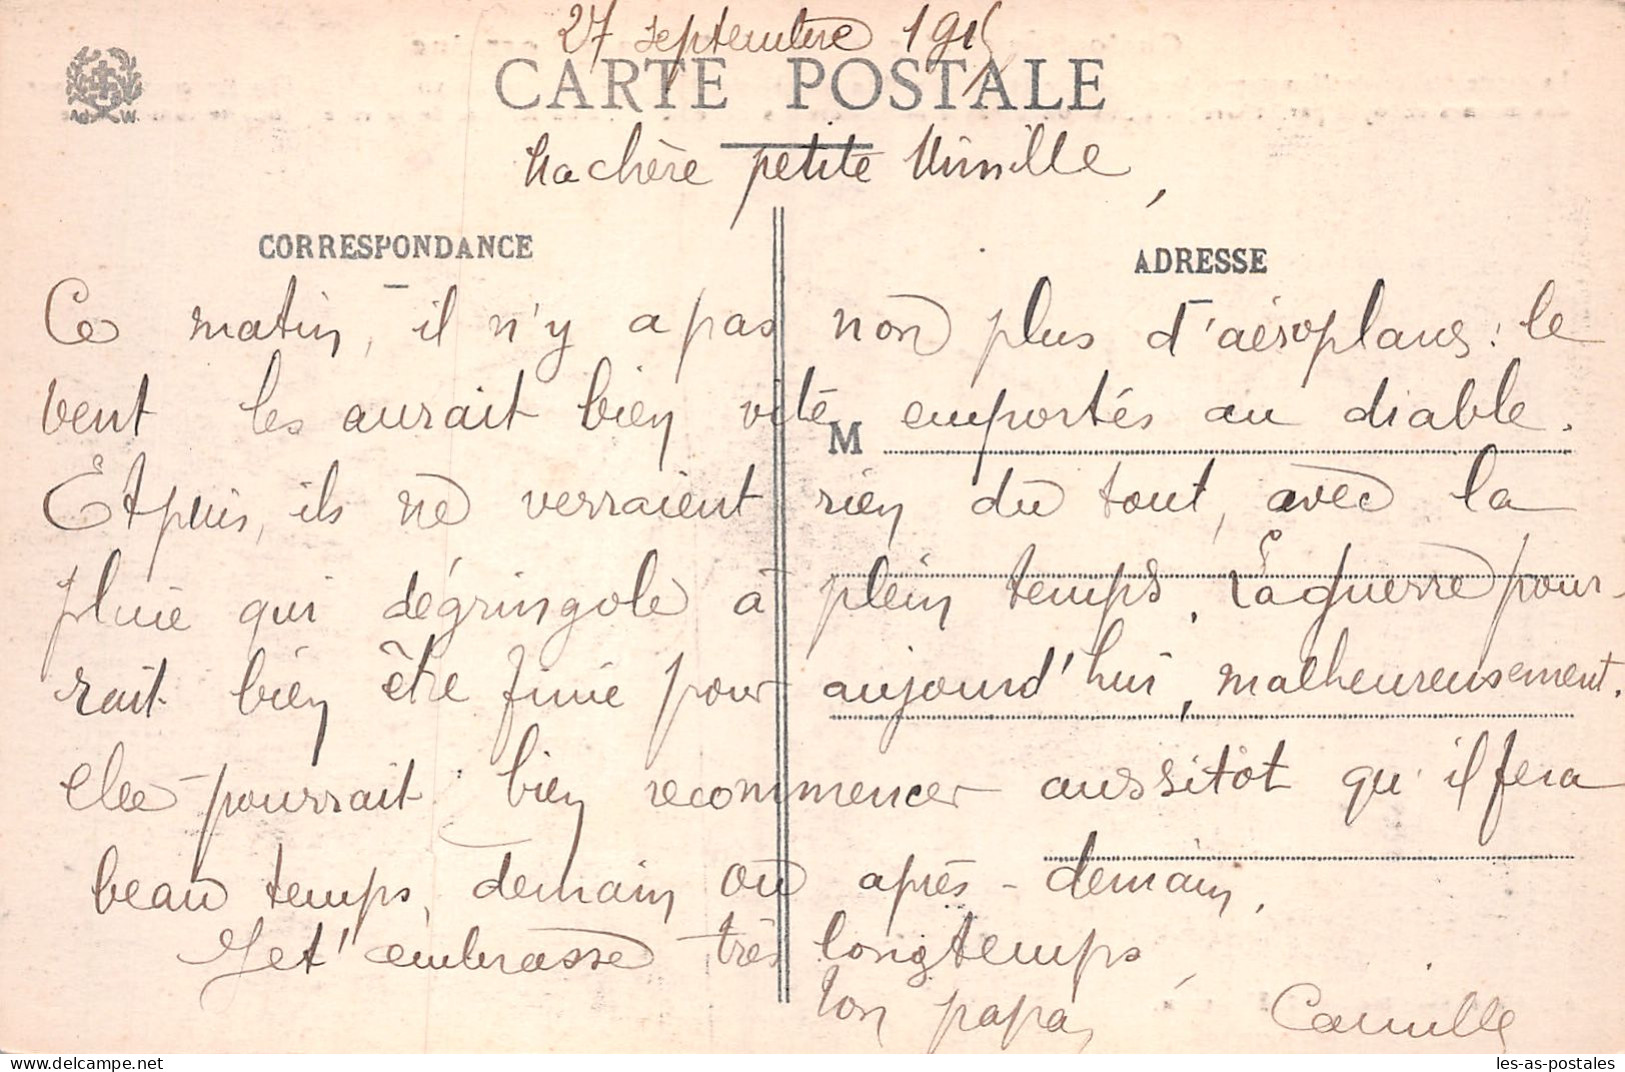 27 septembre 1915
CARTE POSTALE
A. W.
Ma chère petite Mimille,
CORRESPONDANCE
ADRESSE
Ce matin, il n'y a pas non plus d'aéroplans : le
vent les aurait bien vite emportés au diable.
M
Et puis, ils ne verraient rien du tout, avec la
pluie qui dégringole à plein temps. La guerre pour-
rait bien être finie pour aujourd'hui, malheureusement.
elle pourrait bien recommencer aussitôt qu'il fera
beau temps, demain ou après-demain.
Je t'embrasse très longtemps
Ton papa, Camille
les-as-postales